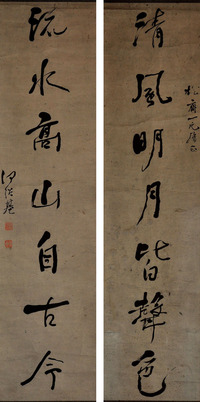 清風明月皆聲色
流水高山自古今